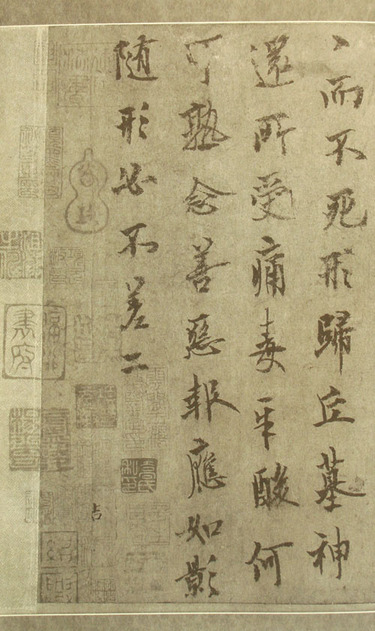 〻而不死形歸丘墓神
還所受痛毒辛酸何
可熟念善惡報應如影
随形必不差二